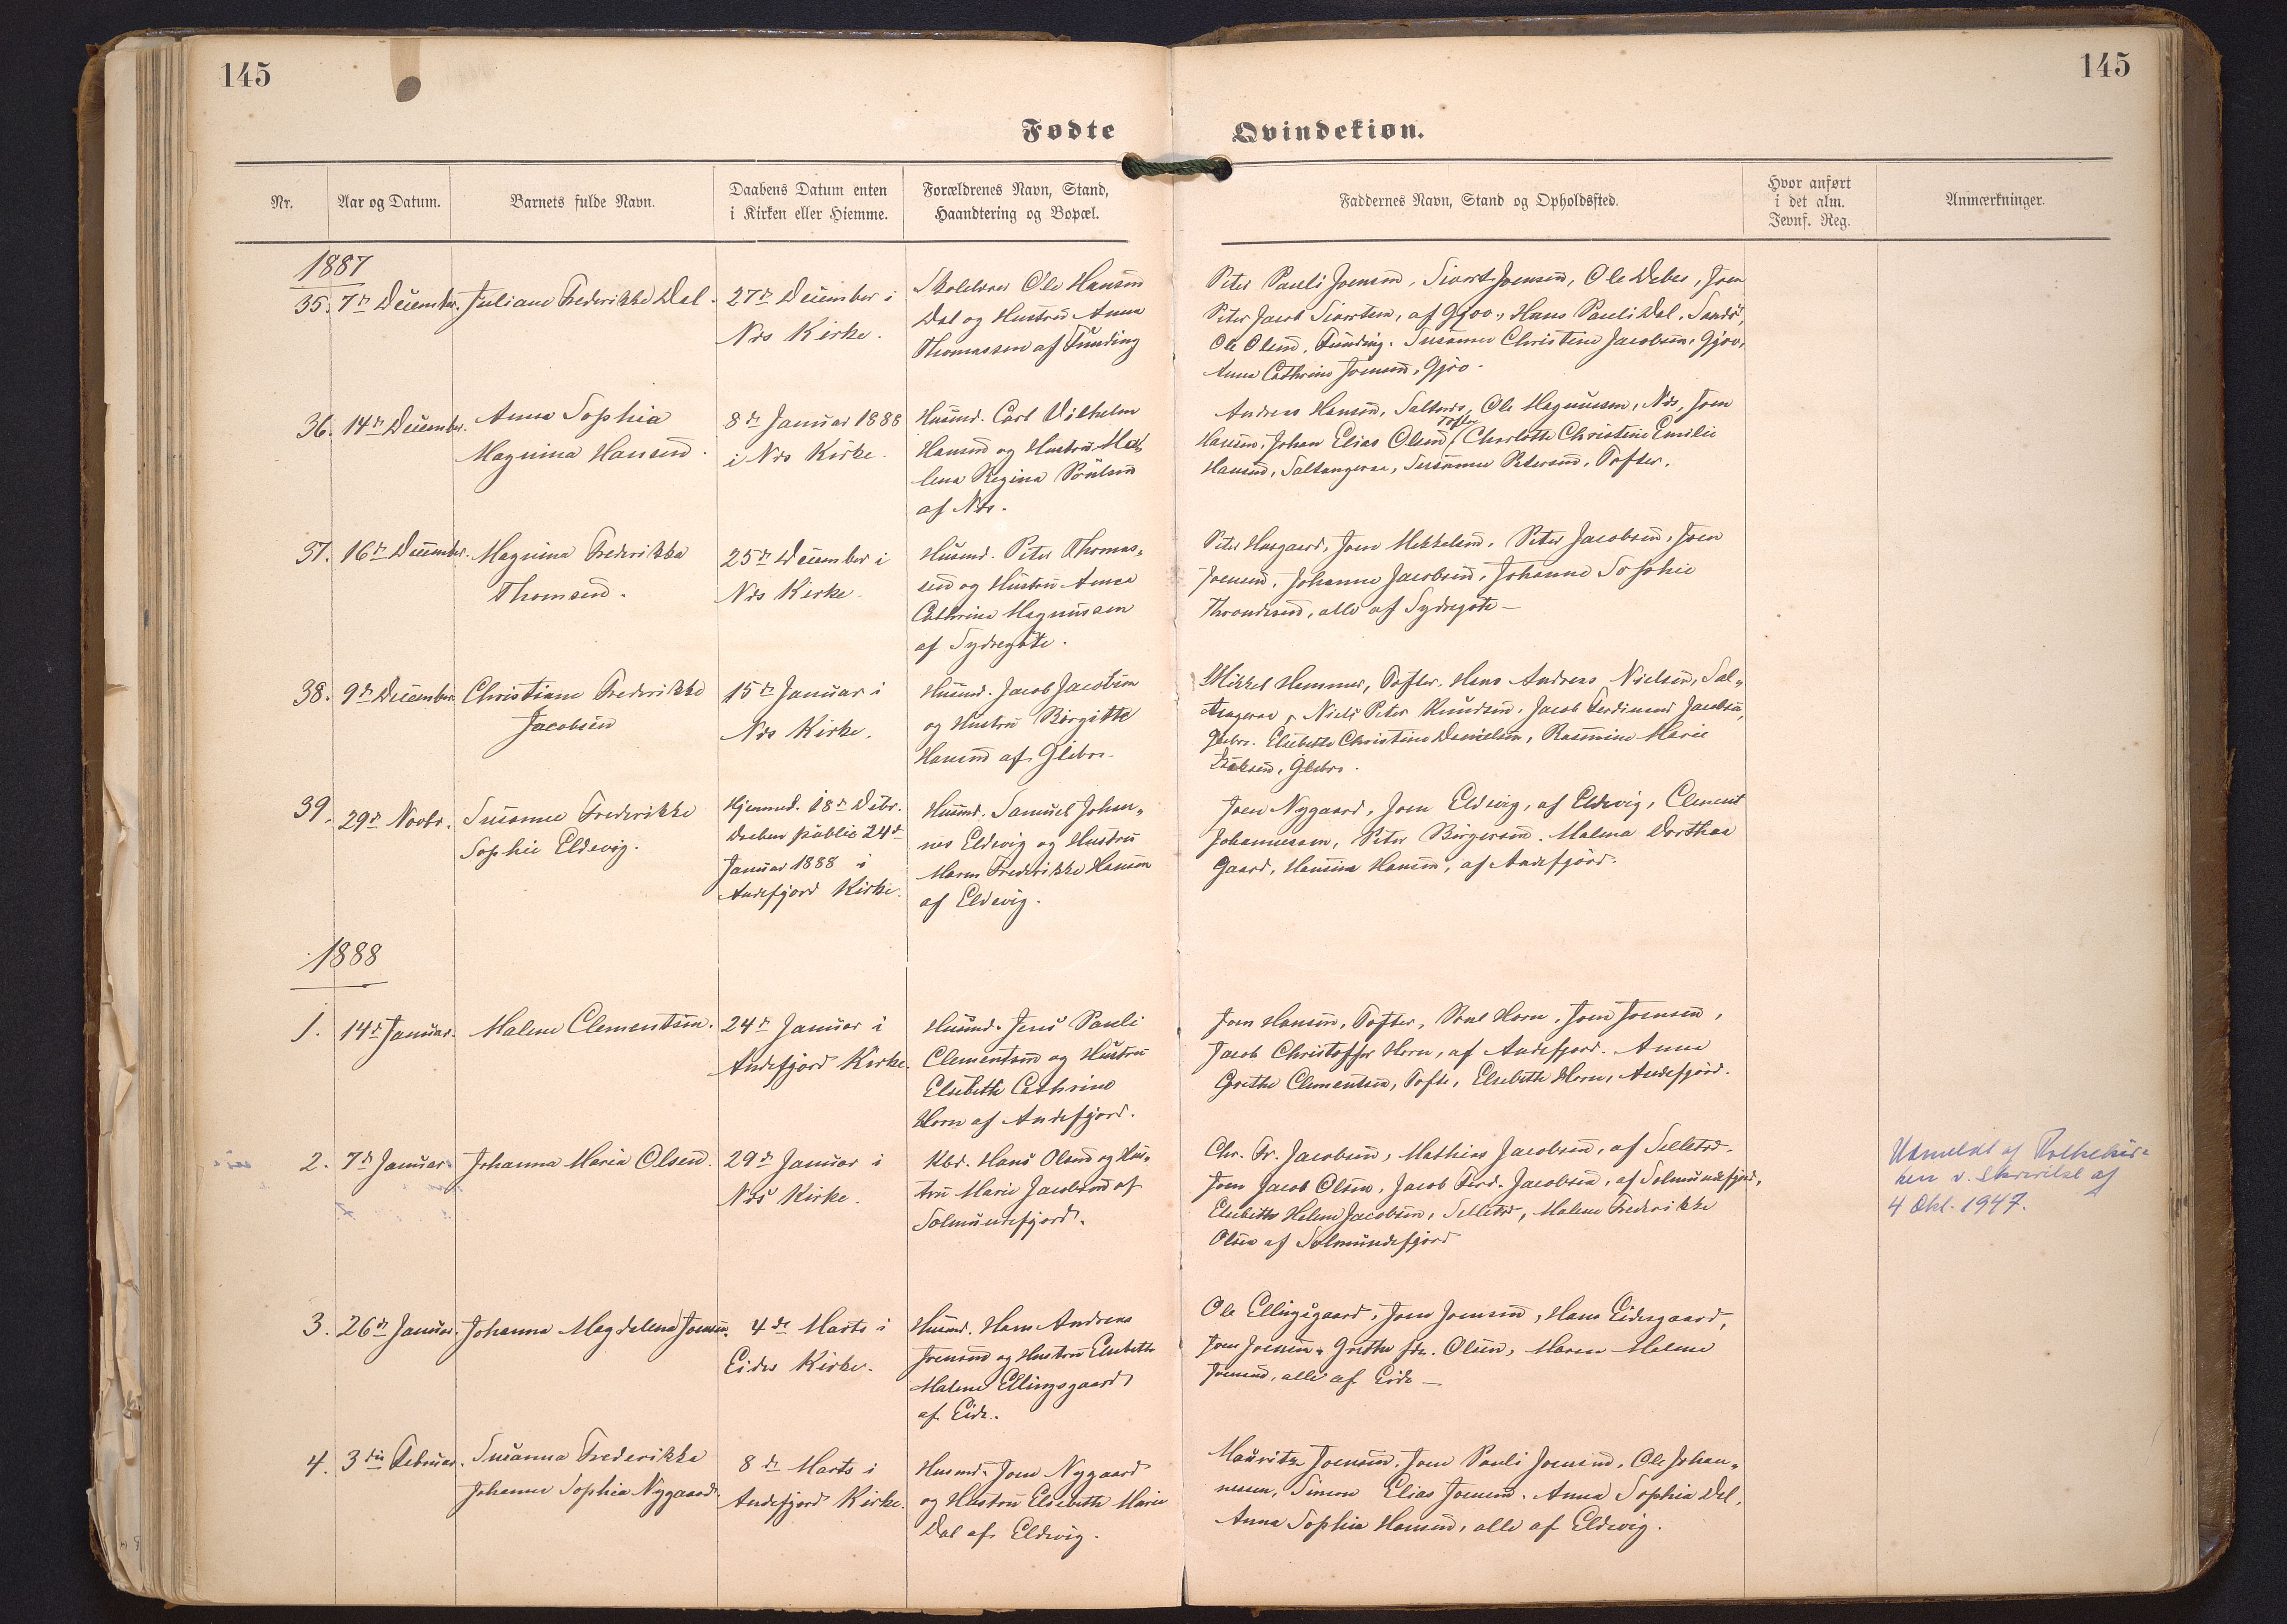 145
145
Fødte
Qvindekiøn.
Nr.
Aar og Datum.
Barnets fulde Navn.
Daabens Datum enten
i Kirken eller Hiemme.
Forældrenes Navn, Stand,
Haandtering og Bopæl.
Faddernes Navn, Stand og Opholdssted.
Hvor anført
i det alm.
Jevnf. Reg.
Anmærkninger.
1887
35. 7de December.
Juliane Frederikke Dal.
27de December i
Nes Kirke.
Skolelærer Ole Hansen
Dal og Hustru Anna
Thomassen af Funding
Peter Pauli Joensen, Sivert Joensen, Ole Debes, Joen
Peter Jacob Sivertsen, af Gjov, Hans Pauli Dal, Sandø,
Ole Olsen, Funding. Susanne Christine Jacobsen, Gjov,
Anna Cathrine Joensen, Gjov.
36. 14de December.
Anna Sophia
Magnina Hansen.
8de Januar 1888
i Nes Kirke.
Husmd. Carl Vilhelm
Hansen og Hustru Ma-
lena Regina Poulsen
af Nes.
Andreas Hansen, Saltnes, Ole Magnussen, Nes, Joen
Hansen, Johan Elias Olsen, Tofter, Charlotte Christine Emilie
Hansen, Saltangeraa, Susanne Petersen, Tofter.
37. 16de December.
Magnina Frederikka
Thomsen.
25de December i
Nes Kirke.
Husmd. Peter Thomas-
sen og Hustru Anna
Cathrine Magnussen
af Sydregøte.
Peter Husgaard, Joen Mikkelsen, Peter Jacobsen, Joen
Joensen, Johanne Jacobsen, Johanne Sophie
Throndesen, alle af Sydregøte –
38. 9de December
Christiane Frederikke
Jacobsen
15de Januar i
Nes Kirke.
Husmd. Jacob Jacobsen
og Hustru Birgitte
Hansen af Glibre.
Mikkel Hammer, Tofter. Hans Andreas Nielsen, Sal-
tangeraa, Niels Peter Knudsen, Jacob Ferdinand Jacobsen,
Glibre. Elsebeth Christine Danielsen, Rasmine Marie
Isaksen, Glibre.
39. 29de Novbr.
Susanne Frederikke
Sophie Eldevig.
Hjemmed. 18de Decbr.
Daaben public. 24de
Januar 1888 i
Andefjord Kirke.
Husmd. Samuel Johan-
nes Eldevig og Hustru
Maren Frederikke Hansen
af Eldevig.
Joen Nygaard, Joen Eldevig, af Eldevig, Clement
Johannessen, Peter Birgersen. Malena Dorthea
Gaard, Hansina Hansen, af Andefjord.
1888
1. 14de Januar.
Malene Clementsen.
24de Januar i
Andefjord Kirke.
Husmd. Jens Pauli
Clementsen og Hustru
Elsebeth Cathrine
Horn af Andefjord.
Joen Hansen, Tofter, Poul Horn, Joen Joensen,
Jacob Christoffer Horn, af Andefjord. Anna
Grethe Clementsen, Tofte, Elsebeth Horn, Andefjord.
2. 7de Januar
Johanna Maria Olsen.
29de Januar i
Nes Kirke.
Kbd. Hans Olsen og Hus-
tru Marie Jacobsen af
Solmundefjord.
Chr. Fr. Jacobsen, Mathias Jacobsen, af Selletræ.
Joen Jacob Olsen, Jacob Ferd. Jacobsen, af Solmundefjord,
Elsebeth Helene Jacobsen, Selletræ, Malene Frederikke
Olsen af Solmundefjord
Udmeldt af Folkekir-
ken v. Skrivelse af
4 Okt. 1947.
3. 26de Januar.
Johanna Magdalena Joensen.
4de Marts i
Eides Kirke.
Husmd. Hans Andreas
Joensen og Hustru Elsebeth
Malene Ellingsgaard
af Eide.
Ole Ellingsgaard, Joen Joensen, Hans Eidesgaard,
Joen Joensen, Grethe Olsen, Maren Malene
Joensen, alle af Eide –
4. 3die Februar.
Susanna Frederikka
Johanne Sophia Nygaard.
8de Marts i
Andefjord Kirke.
Husmd. Joen Nygaard
og Hustru Elsebeth Marie
Dal af Eldevig.
Mauritz Joensen, Joen Pauli Joensen, Ole Johan-
nesen, Simon Elias Joensen. Anna Sophia Dal,
Anna Sophia Hansen, alle af Eldevig.